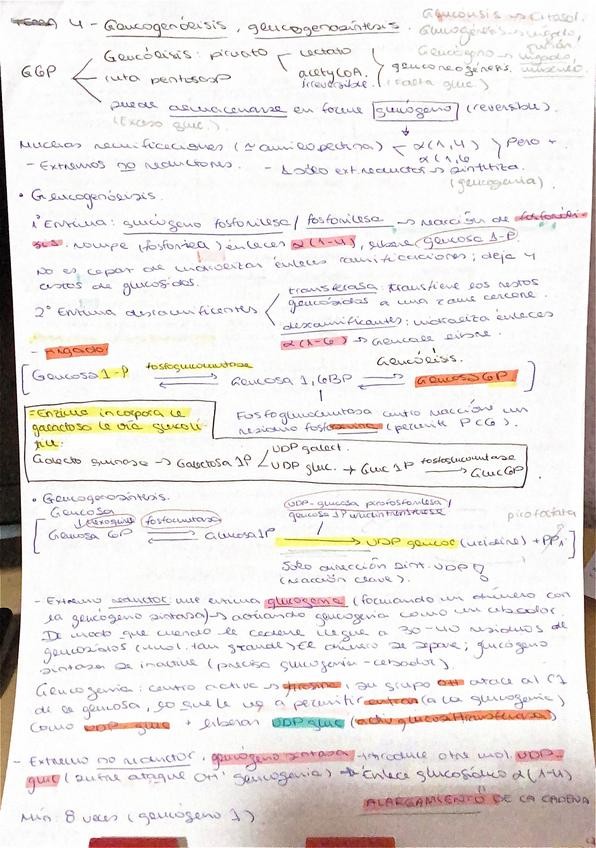 TEMA 4 - Glucogenólisis, glucogenosíntesis.
Glucólisis → citosol.
G6P
Glucólisis: piruvato
lactato
acetylCoA.
irreversible
gluconeogénesis.
(falta gluc.)
ruta pentosasP
puede almacenarse en forma glucógeno (reversible).
(Exceso gluc.)
Muchas ramificaciones (≈ amilopectina)
α(1,4)
α(1,6
Pero +
- Extremos no reductores.
- 1 sólo ext reductor → sintetiza
(glucogenia).
• Glucogenólisis.
1ª Enzima: glucógeno fosforilasa / fosforilasa → reacción de
rompe (fosforila) enlaces α(1-4), libera glucosa 1-P.
No es capaz de hidrolizar enlaces ramificaciones; deja 4
restos de glucosidos.
2ª Enzima desramificantes
transferasa: transfiere los restos
glucósidos a una rama cercana.
desramificantes: hidroliza enlaces
α(1-6) → Glucosa libre.
- Hígado:
Glucosa 1-P
fosfoglucomutasa
Glucosa 1,6BP
Glucólisis.
Glucosa 6P
Fosfoglucomutasa centro reacción un
residuo fosfoserina (permite PCG).
= Enzima incorpora la
galactosa la vía glucolí-
tica.
Galacto quinasa → Galactosa 1P
UDP galact.
UDP gluc. → Gluc 1P
fosfoglucomutasa
Gluc 6P
• Glucogenosíntesis.
Glucosa
Glucosa 6P
fosfomutasa
Glucosa 1P
UDP-glucosa pirofosforilasa /
glucosa 1P uridiltransferasa
pirofosfato
UDP glucosa (uridina) + PPi
Sólo dirección sint. UDP
(reacción clave).
- Extremo reductor une enzima glucogenia (formando un dímero con
la glucógeno sintasa) → actuando glucogenia como un cebador.
De modo que cuando la cadena llegue a 30-40 residuos de
glucosidos (mol. tan grande) el dímero se separe; glucógeno
sintasa se inactive (precisa glucogenia - cebador).
Glucogenia: centro activo → tirosina, su grupo OH ataca al C1
de la glucosa, lo que le va a permitir entrar (a la glucogenia)
como UDP-gluc + liberar UDP gluc (activ glucosaltransferasa)
- Extremo no reductor, glucógeno sintasa introduce otra mol. UDP-
gluc (sufre ataque OH⁻ glucogenia) → Enlace glucosídico α(1-4)
ALARGAMIENTO DE LA CADENA
Mín. 8 veces (glucógeno 1)